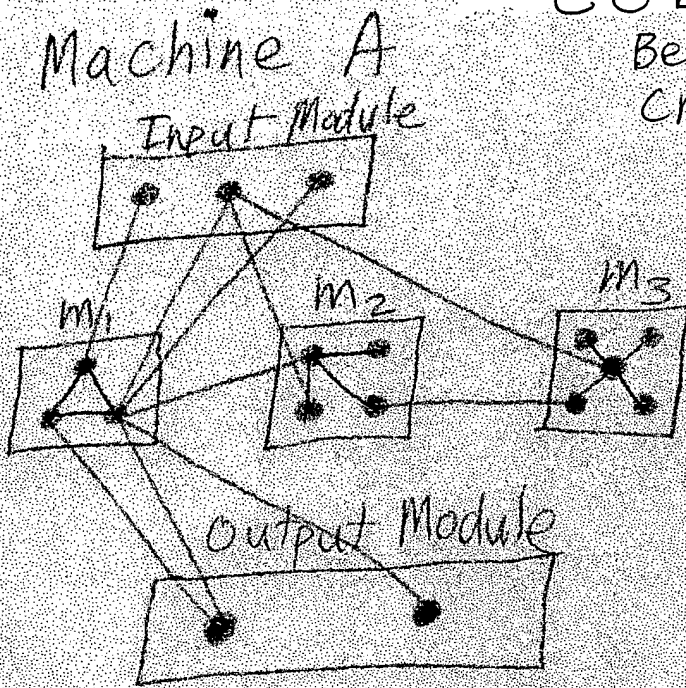 Machine A
Be
Input Module
m1
m2
m3
Output Module